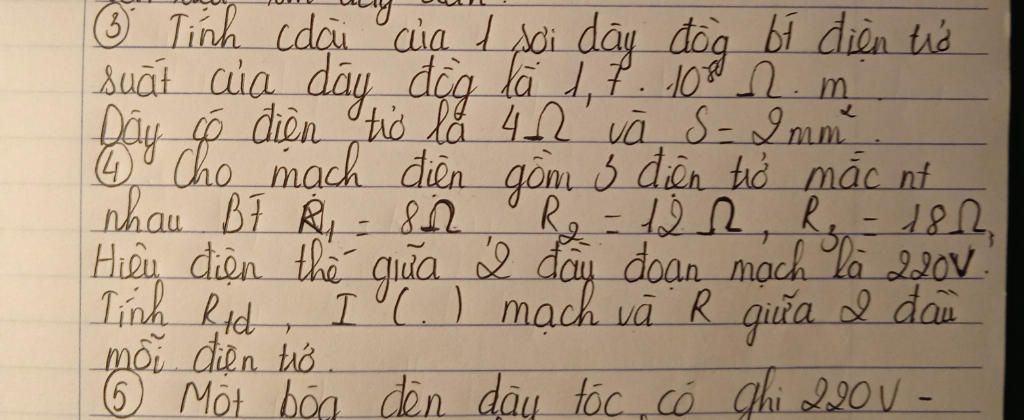 ③ Tính cdài của 1 sợi dây đồg bt điện trở
suất của dây đồg là 1,7.10⁻⁸ Ω.m
Dây có điện trở là 4Ω và S = 2mm².
④ Cho mạch điện gồm 3 điện trở mắc nt
nhau BT R₁ = 8Ω R₂ = 12Ω, R₃ = 18Ω,
Hiệu điện thế giữa 2 đầu đoạn mạch là 220V.
Tính Rtđ, I (.) mạch và R giữa 2 đầu
mỗi điện trở.
⑤ Một bóg đèn dây tóc có ghi 220V -